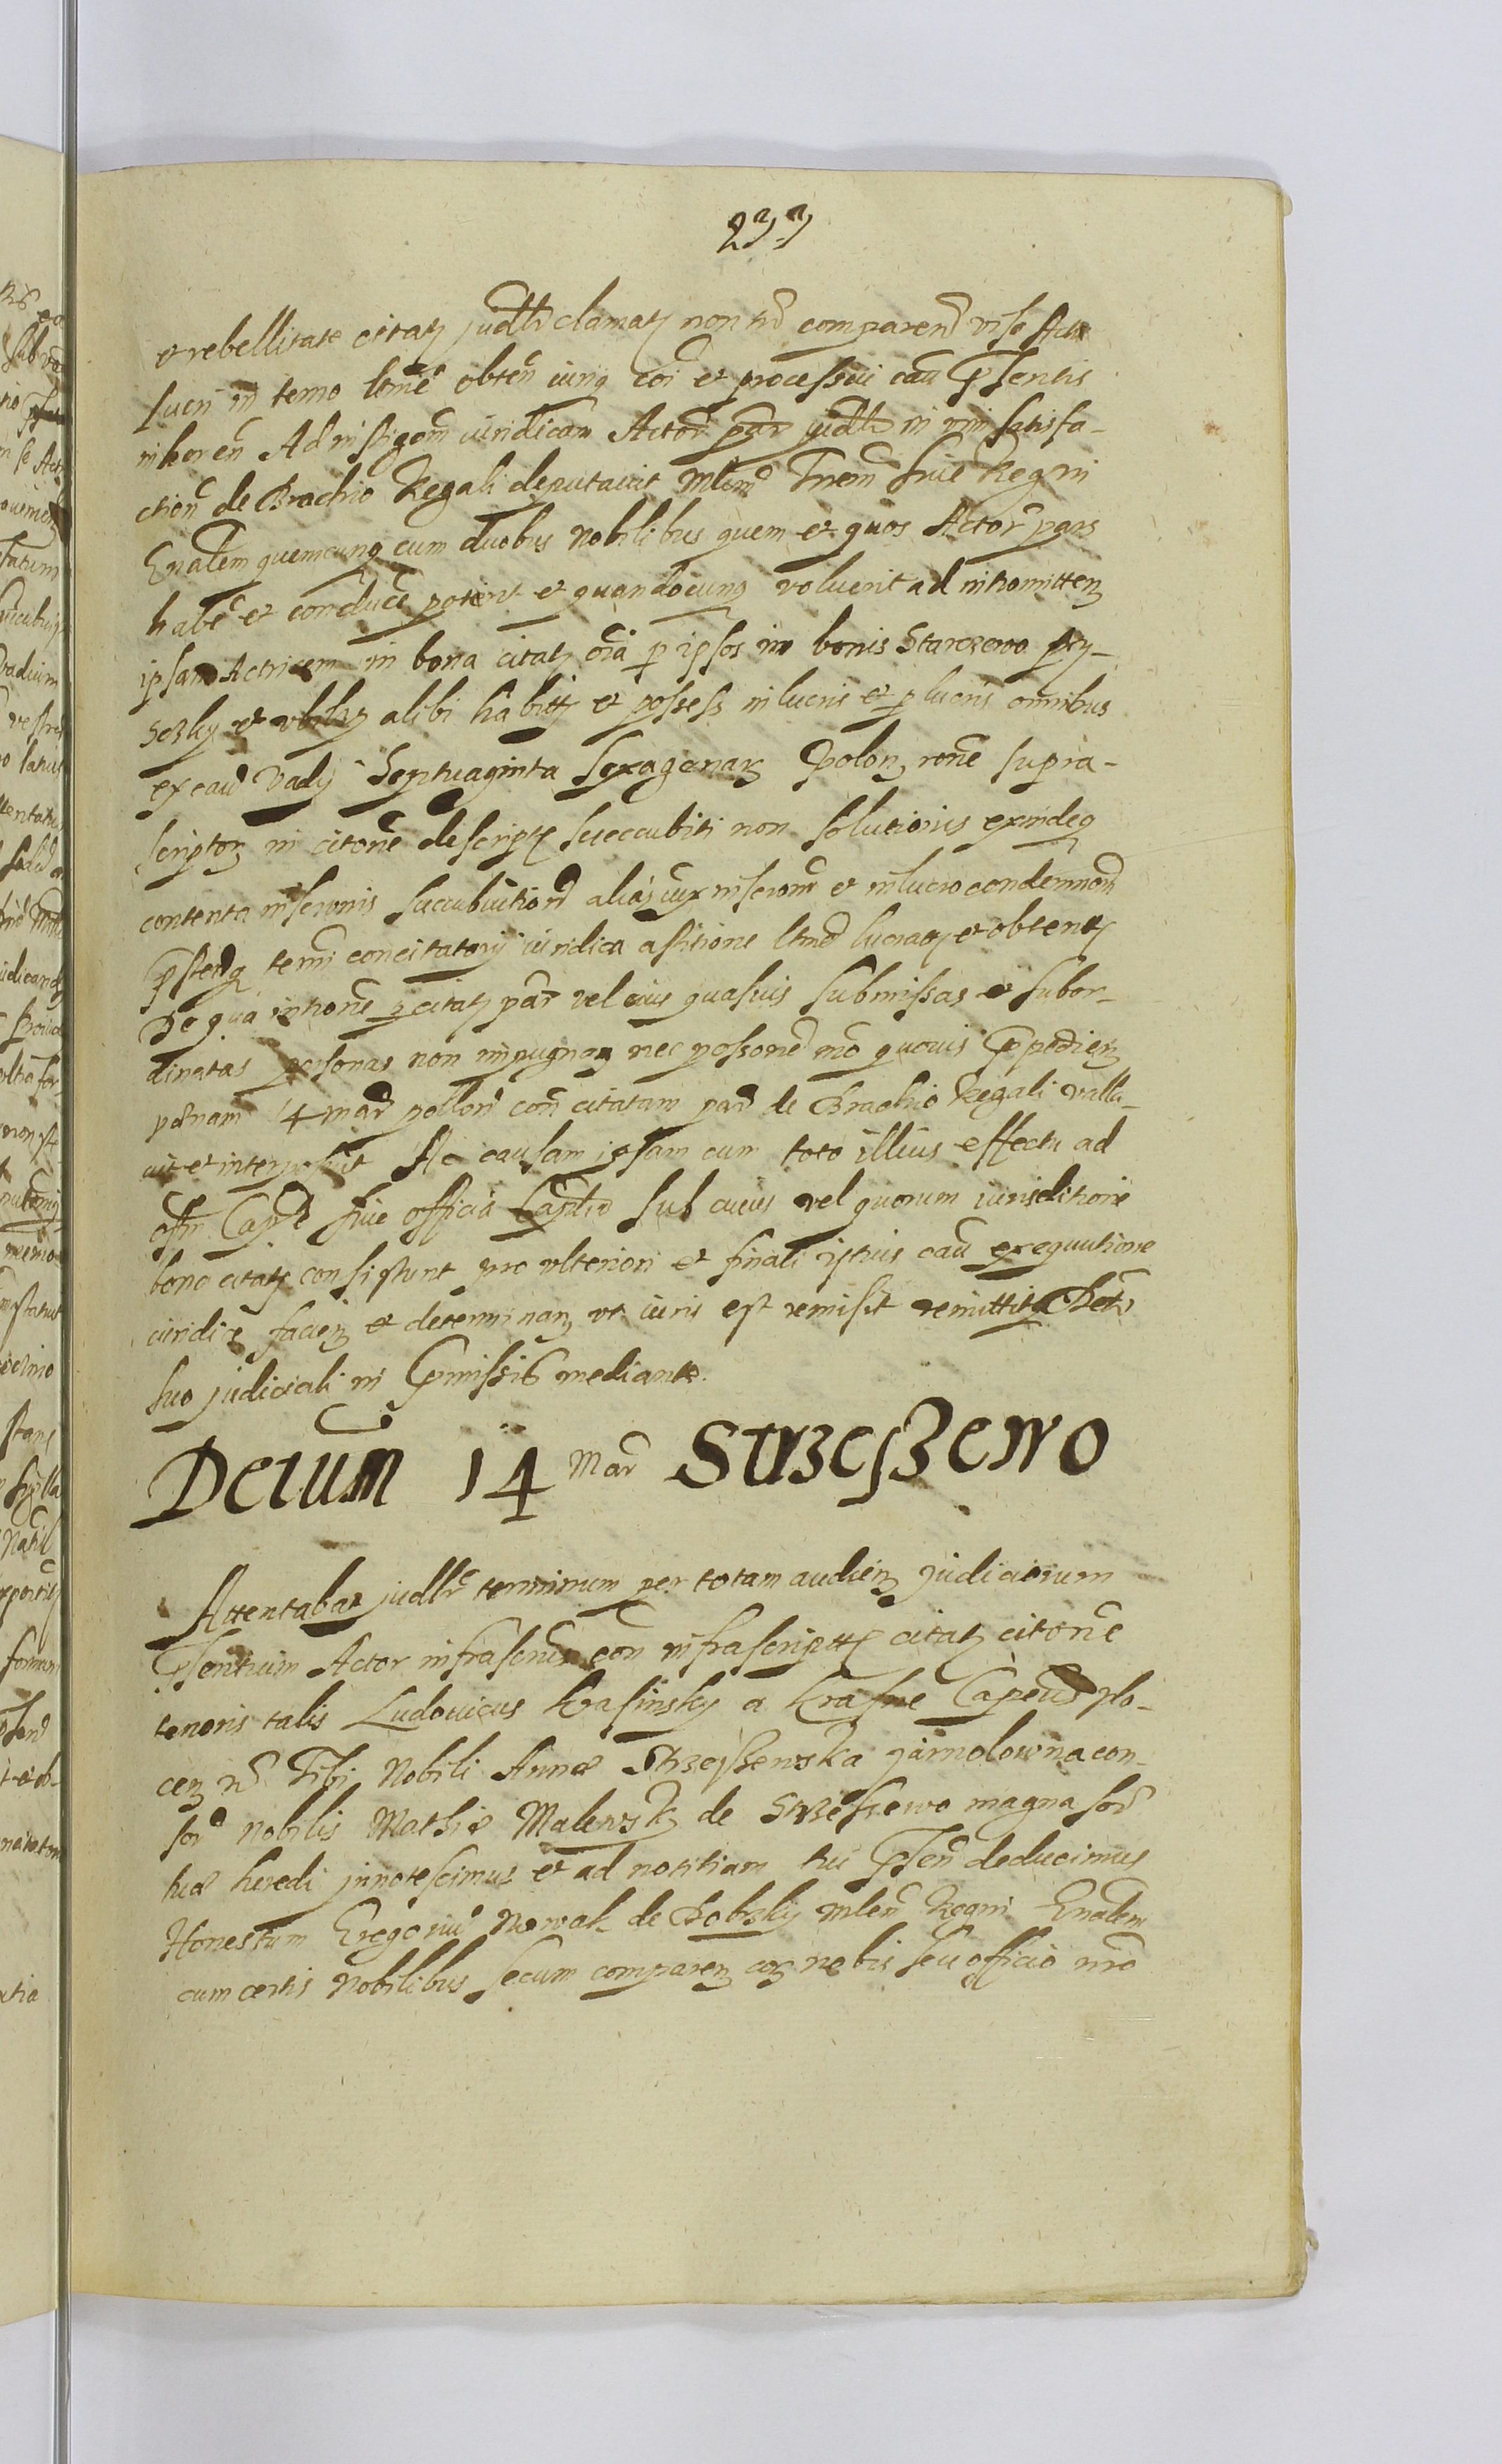 233
et rebellitate citaty judtr clamaty non tn comparen visa Acta
lucri in termo ltme obten iurisq coi et processui cau psentis
inheren Ad instigaom iuridicam Actor par judtr in rim satisfa-
ction de Brachio Regali deputavit mlem Tnem sive Regni
Gnalem quemcunq cum duobus nobilibus quem et quos Actor pars
habe et conduce poterit et quandocunq voluerit ad intromitten
ipsam Actricem in bona citaty oia p ipsos in bonis Starczewo pry-
seczky et ubilibz alibi habitt et possess in lucris et p lucris omnibus
ex cau Vady Septuaginta sexagenar Polon, rone supra-
scriptor in citone descript succubiti non solutionis exindeq
contenta inscronis succubuition alias iux inscronem et in lucro condemnaom
psteq termi concitatory iuridica astitione ltme lucraty et obtenty
De qua intrione citaty par vel eius quasvis submissas et subor-
dinatas personas non impugnan nec possone mo quovis Ppedien
poenam 14 mar pollon con citatam par de Brachio Regali valla-
vit et interposuit Ac causam ipsam cum toto illius effectu ad
offm Capte sive officia Captr sub cuius vel quorum iurisditione
bona citaty consistunt pro ulteriori et finali istius cau exequutione
iuridice facien et determinan ut iuris est remisit remittitq Dcto
suo judiciali in Pmissis mediante.
Detum 14 mar Strzeszewo
Attentabat judtr terminum per totam audien judiciorum
psentium Actor infrascriptus con infrascriptty citaty citone
tenoris talis Ludovicus Krasinsky a Krasne Capeus plo-
cen n Tibi Nobili Anna Strzeszewska jarnolowna con-
sor nobilis Mathie Malewsky de Strzeszewo magna sor
tua heredi innotescimus et ad notitiam tui psen deducimus
Honestum Gregoriu Nowak de Dobrsky mlen Regni Gnalem
cum certis nobilibus secum comparen cor nobis seu officio nro